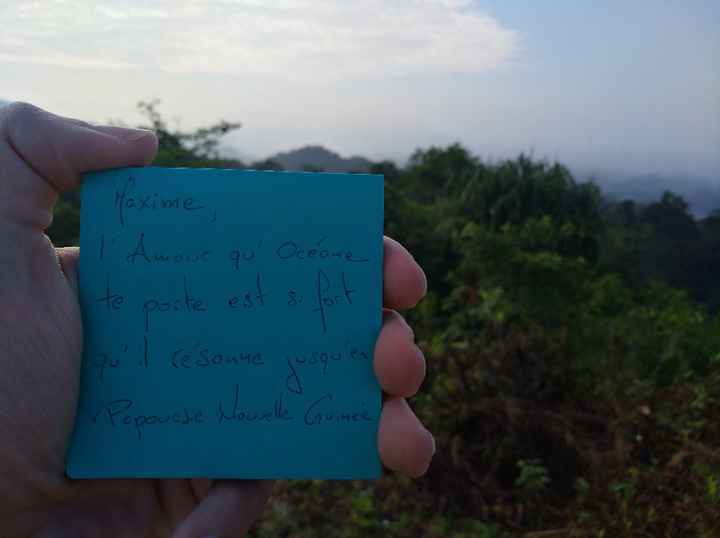 Maxime,
l'Amour qu'Océane
te porte est si fort
qu'il résonne jusqu'en
Papouasie Nouvelle Guinée